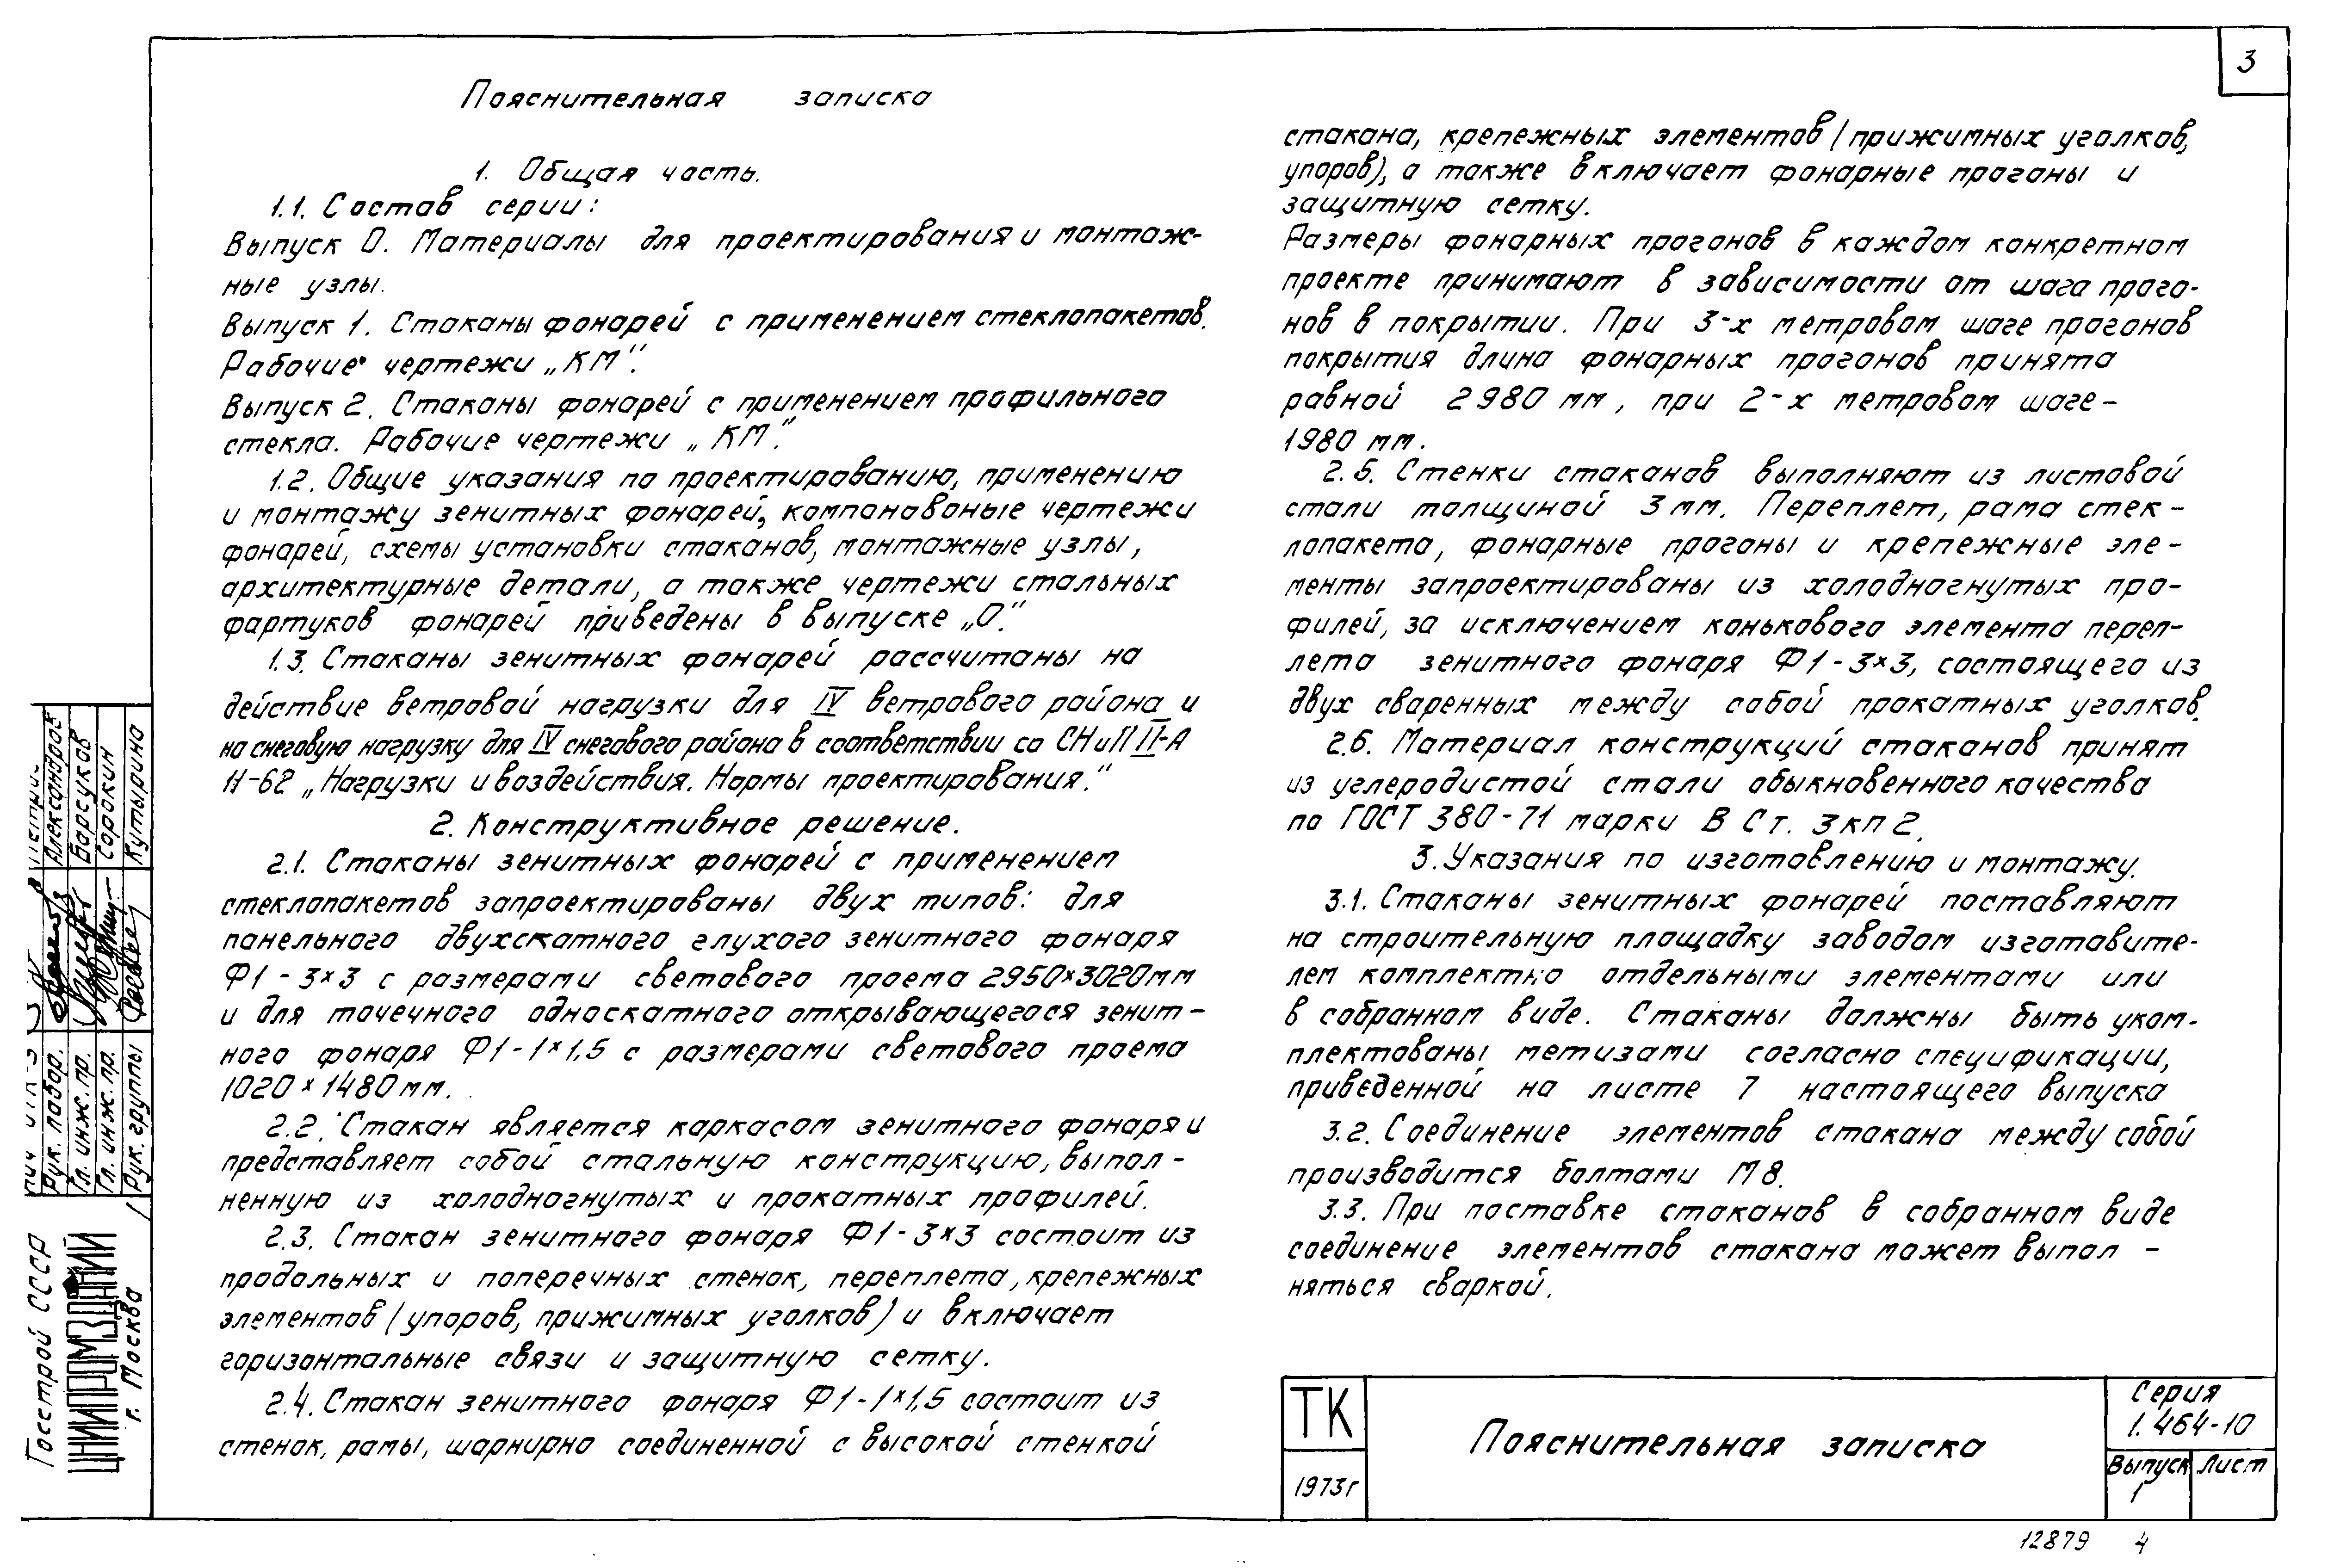 3
Пояснительная записка
1. Общая часть.
1.1. Состав серии:
Выпуск 0. Материалы для проектирования и монтаж-
ные узлы.
Выпуск 1. Стаканы фонарей с применением стеклопакетов.
Рабочие чертежи „КМ".
Выпуск 2. Стаканы фонарей с применением профильного
стекла. Рабочие чертежи „КМ".
1.2. Общие указания по проектированию, применению
и монтажу зенитных фонарей, компановоные чертежи
фонарей, схемы установки стаканов, монтажные узлы,
архитектурные детали, а также чертежи стальных
фартуков фонарей приведены в выпуске „О".
1.3. Стаканы зенитных фонарей рассчитаны на
действие ветровой нагрузки для IV ветрового района и
на снеговую нагрузку для IV снегового района в соответствии со СНиП II-А
11-62 „Нагрузки и воздействия. Нормы проектирования."
2. Конструктивное решение.
2.1. Стаканы зенитных фонарей с применением
стеклопакетов запроектированы двух типов: для
панельного двухскатного глухого зенитного фонаря
Ф1-3×3 с размерами светового проема 2950×3020мм
и для точечного односкатного открывающегося зенит-
ного фонаря Ф1-1×1,5 с размерами светового проема
1020×1480мм.
2.2. Стакан является каркасом зенитного фонаря и
представляет собой стальную конструкцию, выпол-
ненную из холодногнутых и прокатных профилей.
2.3. Стакан зенитного фонаря Ф1-3×3 состоит из
продольных и поперечных стенок, переплета, крепежных
элементов (упоров, прижимных уголков) и включает
горизонтальные связи и защитную сетку.
2.4. Стакан зенитного фонаря Ф1-1×1,5 состоит из
стенок, рамы, шарнирно соединенной с высокой стенкой
стакана, крепежных элементов (прижимных уголков,
упоров), а также включает фонарные прогоны и
защитную сетку.
Размеры фонарных прогонов в каждом конкретном
проекте принимают в зависимости от шага прого-
нов в покрытии. При 3-х метровом шаге прогонов
покрытия длина фонарных прогонов принята
равной 2980 мм, при 2-х метровом шаге-
1980 мм.
2.5. Стенки стаканов выполняют из листовой
стали толщиной 3 мм. Переплет, рама стек-
лопакета, фонарные прогоны и крепежные эле-
менты запроектированы из холодногнутых про-
филей, за исключением конькового элемента переп-
лета зенитного фонаря Ф1-3×3, состоящего из
двух сваренных между собой прокатных уголков.
2.6. Материал конструкций стаканов принят
из углеродистой стали обыкновенного качества
по ГОСТ 380-71 марки В Ст. 3 кп 2.
3. Указания по изготовлению и монтажу.
3.1. Стаканы зенитных фонарей поставляют
на строительную площадку заводом изготовите-
лем комплектно отдельными элементами или
в собранном виде. Стаканы должны быть уком-
плектованы метизами согласно спецификации,
приведенной на листе 7 настоящего выпуска
3.2. Соединение элементов стакана между собой
производится болтами М8.
3.3. При поставке стаканов в собранном виде
соединение элементов стакана может выпол-
няться сваркой.
ТК
1973г
Пояснительная записка
Серия
1.464-10
Выпуск
1
Лист
12879 4
Госстрой СССР
ЦНИИПРОМЗДАНИЙ
г. Москва
Рук. лабор. Александров
Гл. инж. пр. Барсуков
Гл. инж. пр. Сорокин
Рук. группы Кутырина